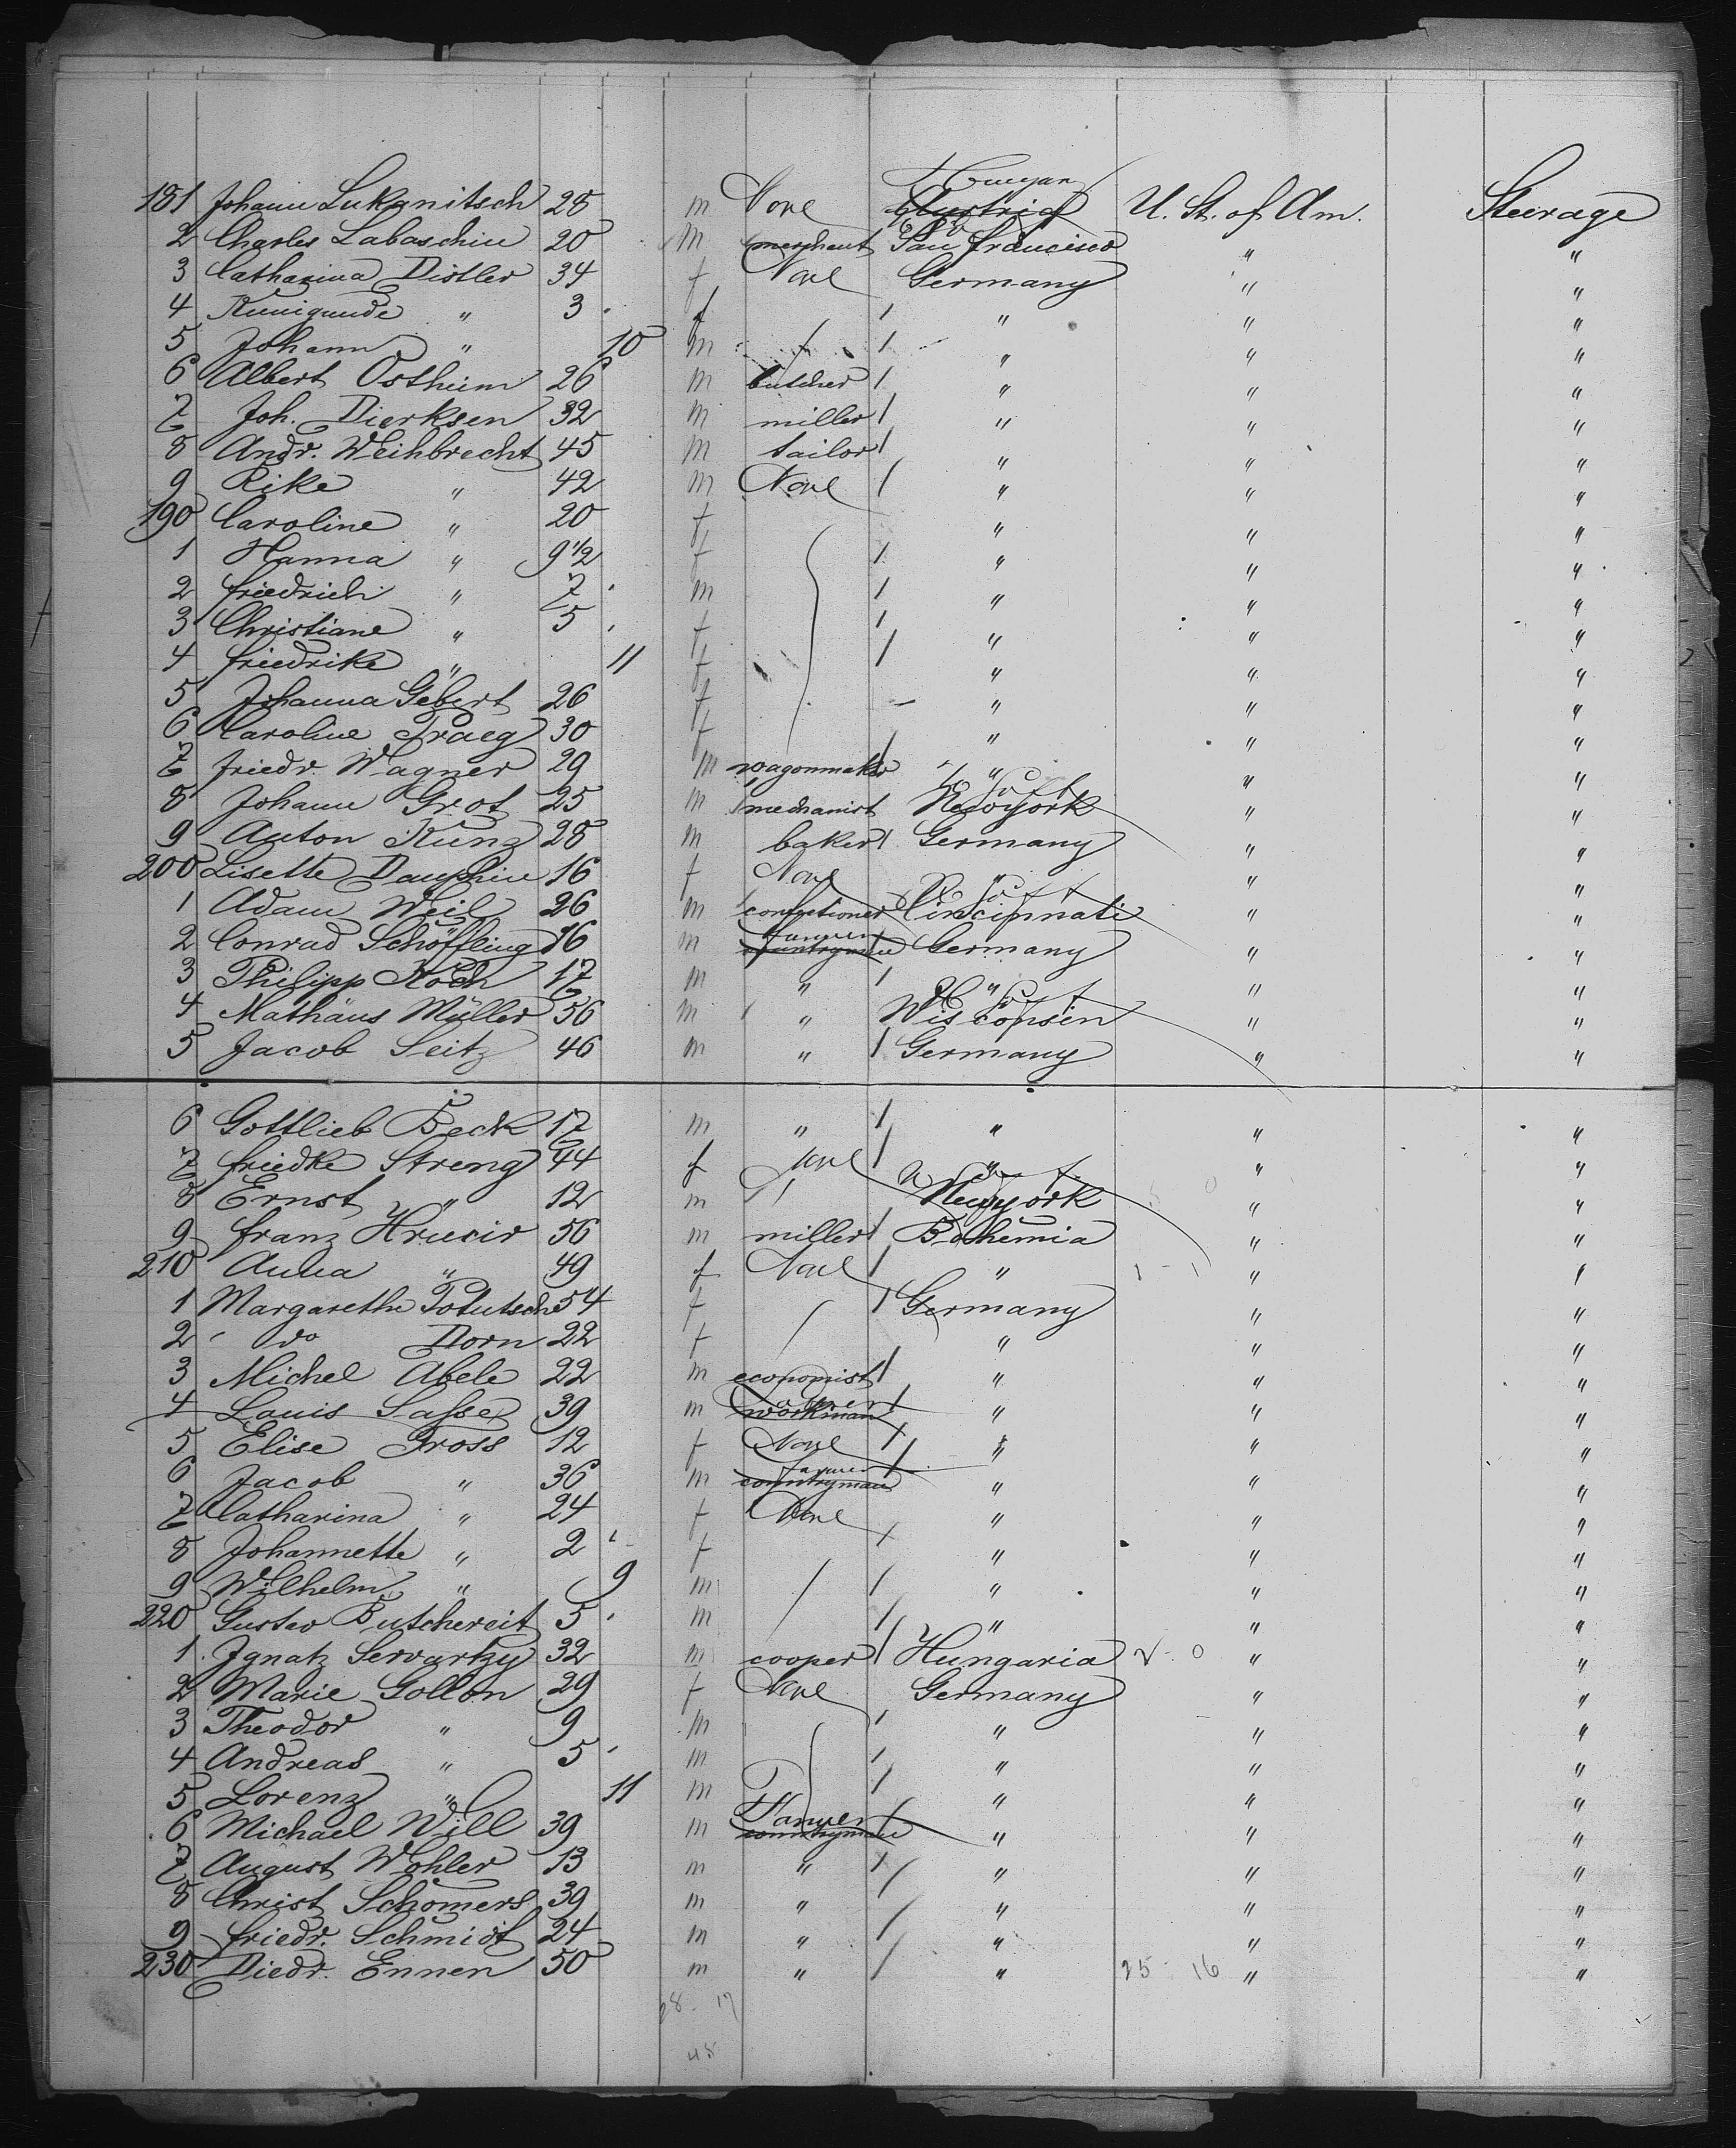 181 Johann Lukanitsch 28 m None Hungary Austria U. St. of Am. Steerage
2 Charles Labaschin 20 m merchant San francisco " "
3 Catharina Distler 34 f None Germany " "
4 Kunigunde " 3 f " " "
5 Johann " 10 m " " "
6 Albert Ostheim 26 m butcher " " "
7 Joh. Dierksen 32 m miller " " "
8 Andr. Weihbrecht 45 m tailor " " "
9 Rike " 42 m None " " "
190 Caroline " 20 f " " "
1 Hanna " 9 1/2 f " " "
2 friedrich " 7 m " " "
3 Christiane " 5 f " " "
4 friedrike " 11 f " " "
5 Johanna Gebert 26 f " " "
6 Caroline Praeg 30 f " " "
7 friedr. Wagner 29 m wagonmaker " " "
8 Johann Grot 25 m mechanist Newyork " "
9 Anton Kunz 28 m baker Germany " "
200 Lisette Dauphin 16 f None " " "
1 Adam Weil 26 m confectioner Cincinnati " "
2 Conrad Schöffling 16 m farmer countryman Germany " "
3 Philipp Koch 17 m " " " "
4 Mathäus Müller 56 m " Wisconsin " "
5 Jacob Seitz 46 m " Germany " "
6 Gottlieb Beck 17 m " " " "
7 friedke Streng 44 f None " " "
8 Ernst " 12 m Newyork " "
9 franz Hrucir 56 m miller Bohemia " "
210 Anna " 49 f None " " "
1 Margarethe Potutsche 54 f Germany " "
2 do Dorn 22 f " " "
3 Michel Abele 22 m economist " " "
4 Louis Sasse 39 m workman " " "
5 Elise Gross 12 f None " " "
6 Jacob " 36 m farmer countryman " " "
7 Catharina " 24 f None " " "
8 Johannette " 2 f " " "
9 Wilhelm " 9 m " " "
220 Gustav Butchereit 5 m " " "
1 Ignatz Servatzy 32 m cooper Hungaria " "
2 Marie Gollon 29 f None Germany " "
3 Theodor " 9 m " " "
4 Andreas " 5 m " " "
5 Lorenz " 11 m " " "
6 Michael Will 39 m Farmer countryman " " "
7 August Wohler 13 m " " " "
8 Christ Schomers 39 m " " " "
9 friedr. Schmidt 24 m " " " "
230 Diedr. Ennen 50 m " " 25 16 " "
28 17
45